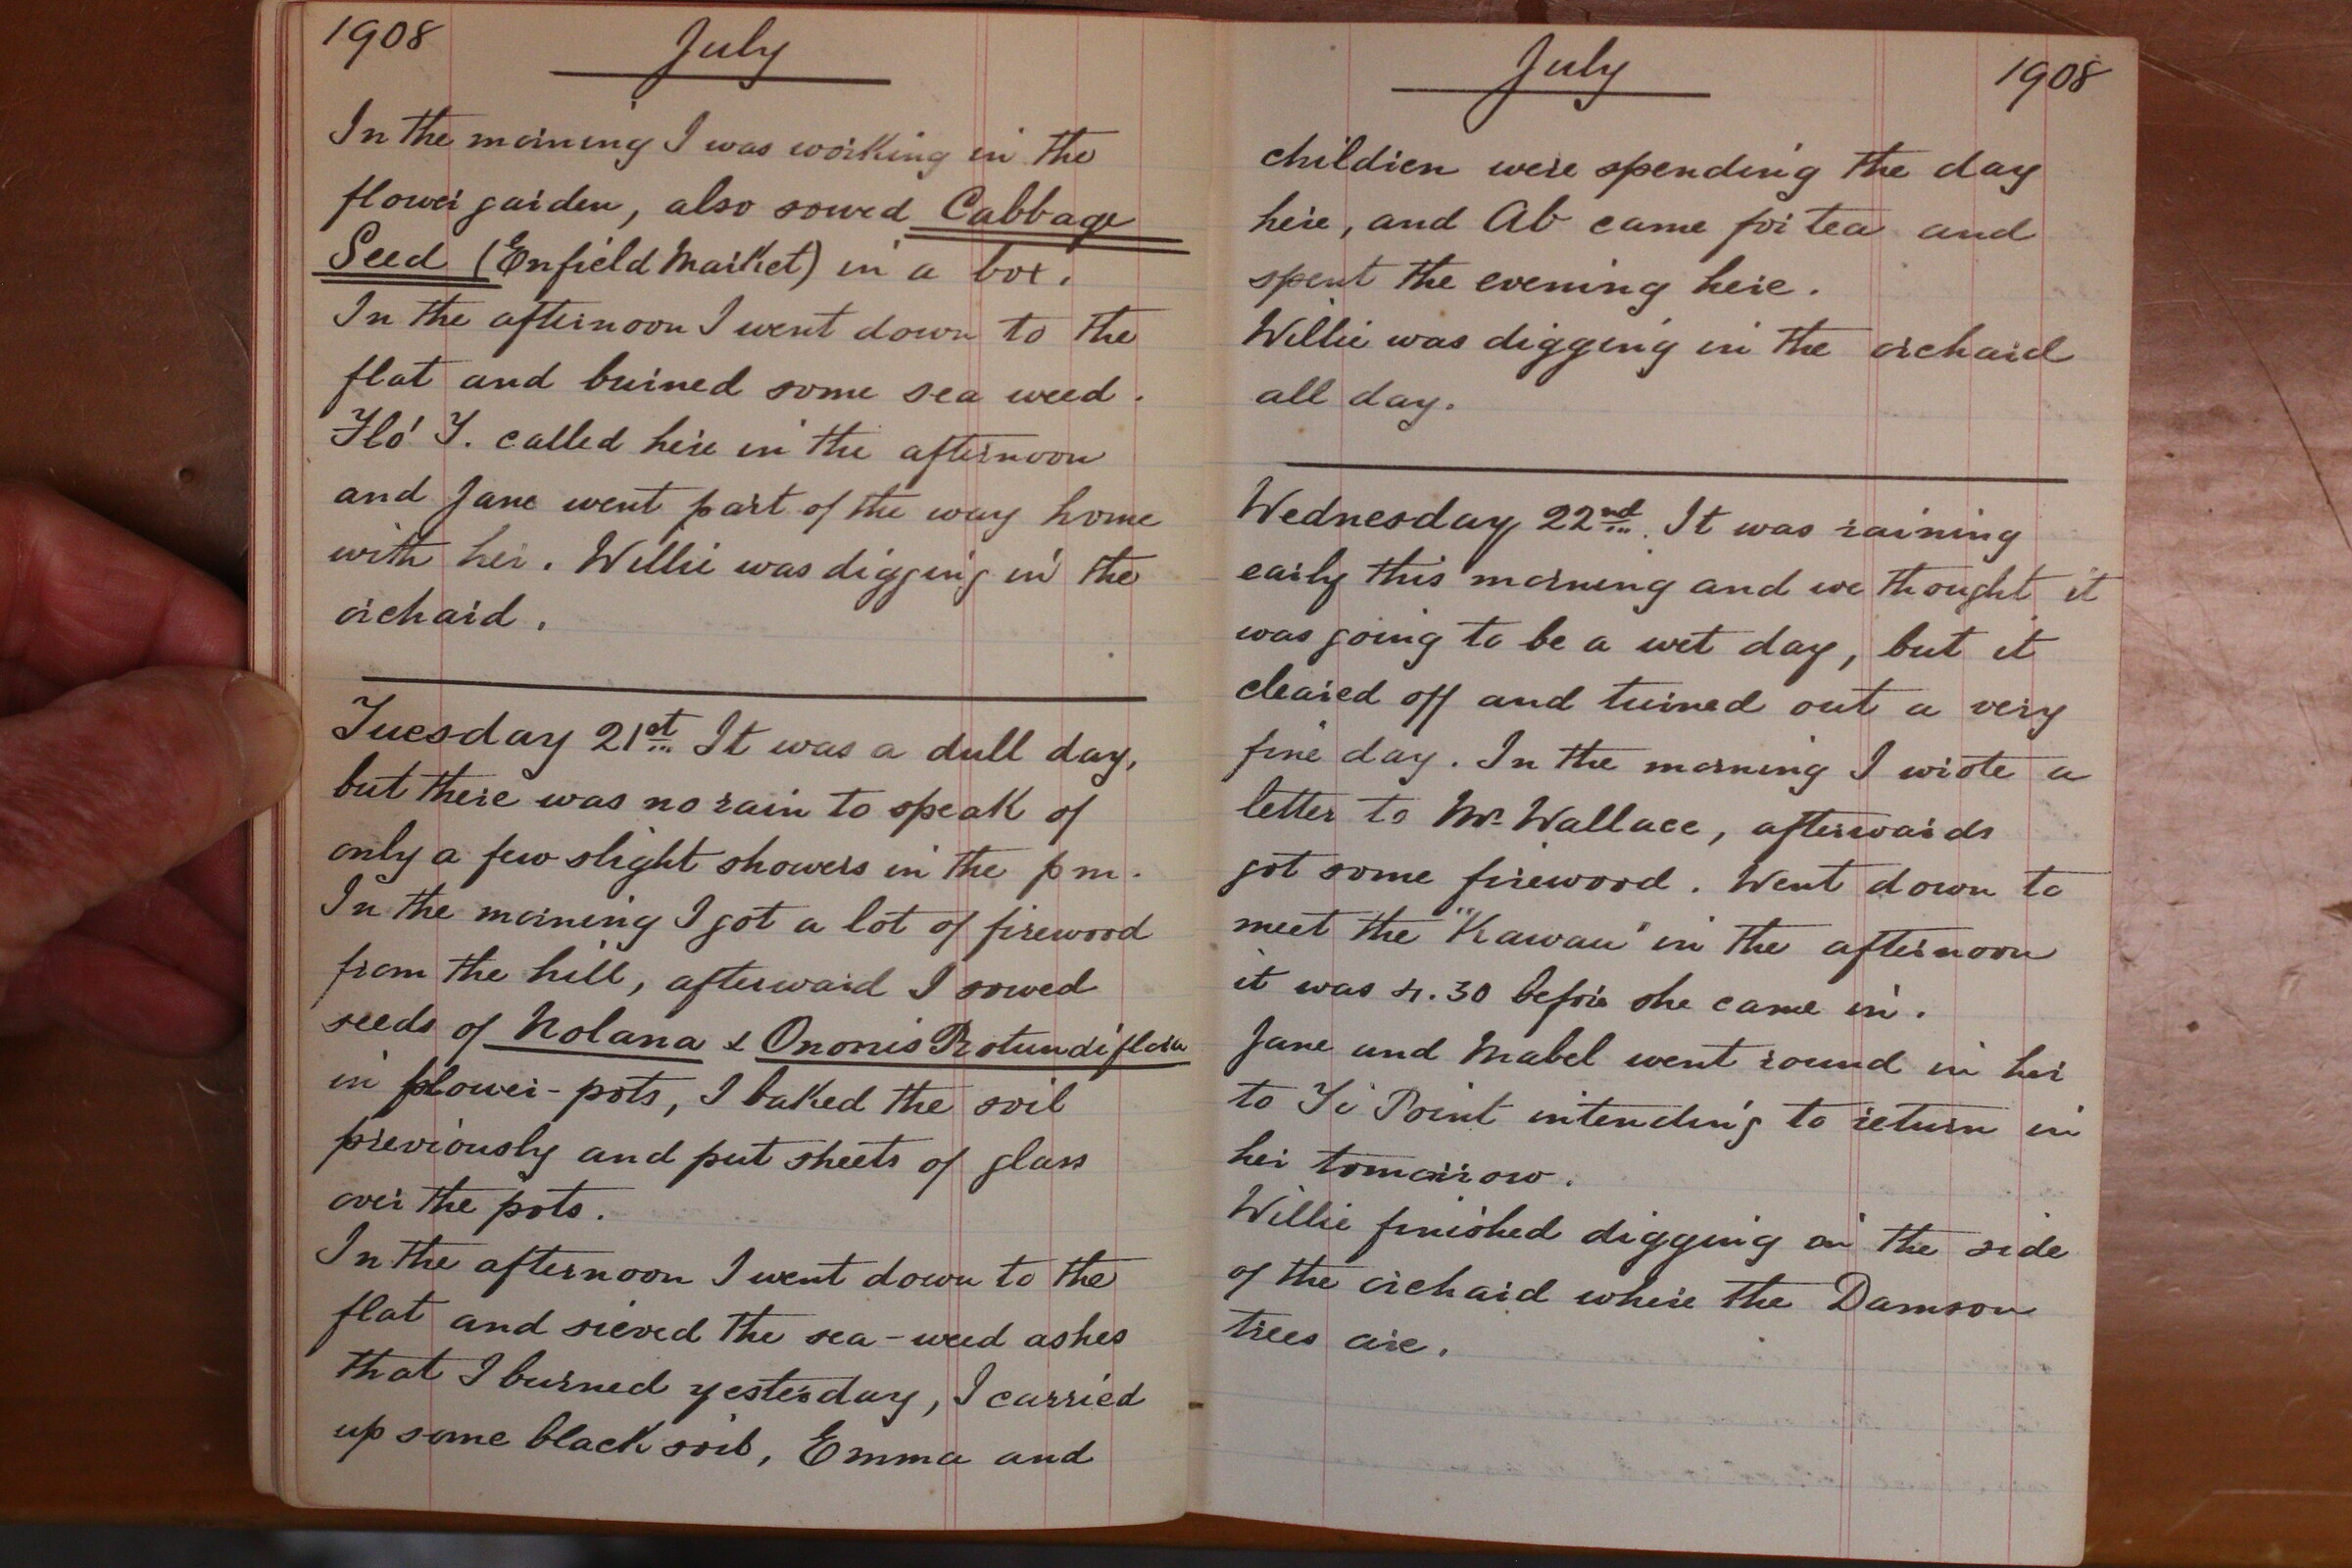 1908
July
In the morning I was working in the
flower garden, also sowed Cabbage
Seed (Enfield Market) in a box.
In the afternoon I went down to the
flat and burned some sea weed.
Flo' Y. called here in the afternoon
and Jane went part of the way home
with her. Willie was digging in the
orchard.
Tuesday 21st. It was a dull day,
but there was no rain to speak of
only a few slight showers in the pm.
In the morning I got a lot of firewood
from the hill, afterward I sowed
seeds of Nolana & Ononis Rotundiflora
in flower-pots, I baked the soil
previously and put sheets of glass
over the pots.
In the afternoon I went down to the
flat and sieved the sea-weed ashes
that I burned yesterday, I carried
up some black soil, Emma and
July
1908
children were spending the day
here, and Ab came for tea and
spent the evening here.
Willie was digging in the orchard
all day.
Wednesday 22nd. It was raining
early this morning and we thought it
was going to be a wet day, but it
cleared off and turned out a very
fine day. In the morning I wrote a
letter to Mr. Wallace, afterwards
got some firewood. Went down to
meet the "Kawau" in the afternoon
it was 4.30 before she came in.
Jane and Mabel went round in her
to Ti Point intending to return in
her tomorrow.
Willie finished digging on the side
of the orchard where the Damson
trees are.